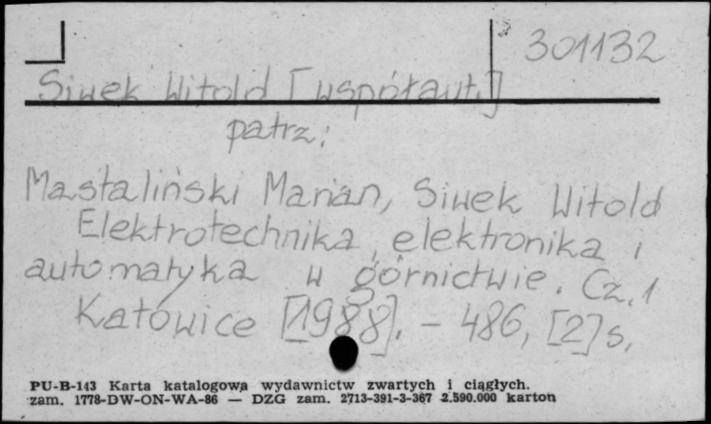 301132
Siwek Witold [współaut.]
patrz:
Mastaliński Marian, Siwek Witold
Elektrotechnika, elektronika i
automatyka w górnictwie. Cz. 1
Katowice [1988]. - 486, [2] s.
PU-B-143 Karta katalogowa wydawnictw zwartych i ciągłych.
zam. 1778-DW-ON-WA-86 — DZG zam. 2713-391-3-367 2.590.000 karton